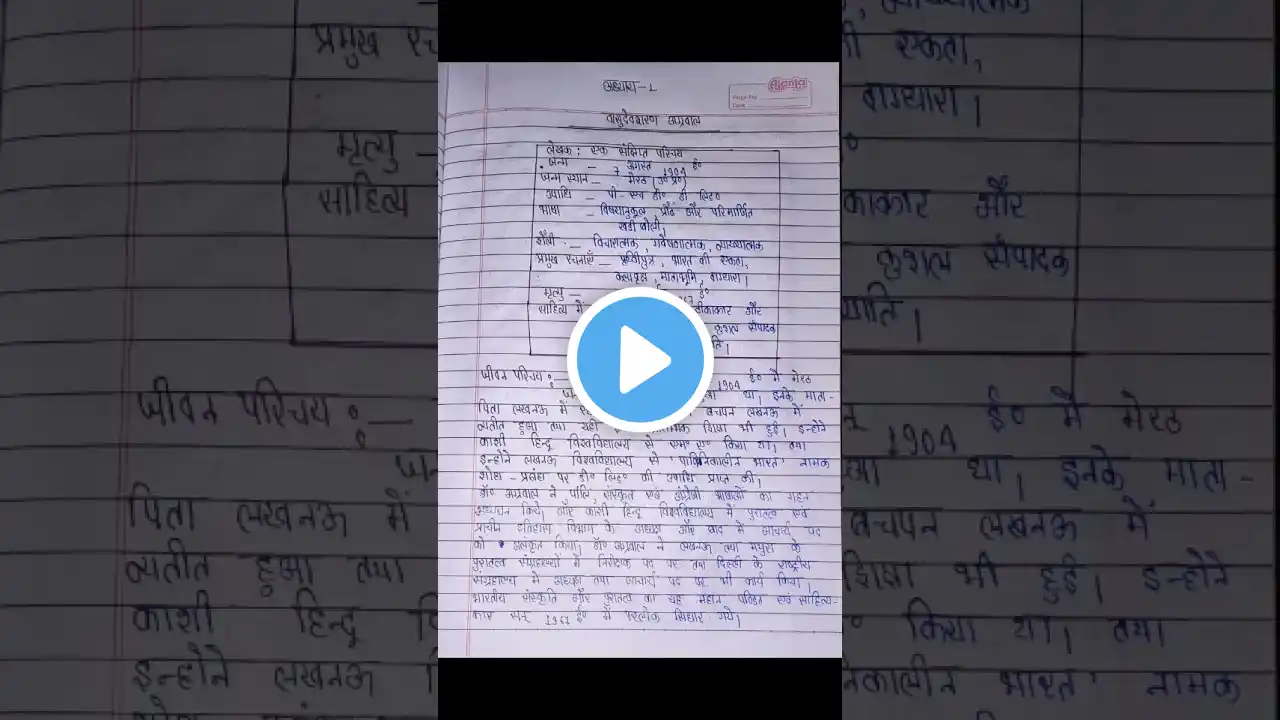 अध्याय-1
Page No.
Date
वासुदेवशरण अग्रवाल
लेखक : एक संक्षिप्त परिचय
जन्म — 7 अगस्त 1904 ई०
जन्म स्थान — मेरठ (उ० प्र०)
उपाधि — पी-एच डी० डी लिट०
भाषा — विषयानुकूल, प्रौढ़ और परिमार्जित
खड़ी बोली,
शैली :— विचारात्मक, गवेषणात्मक, व्याख्यात्मक
प्रमुख रचनाएँ — पृथ्वीपुत्र, भारत की एकता,
कल्पवृक्ष, मातृभूमि, वाग्धारा।
मृत्यु — ई०
साहित्य में टीकाकार और
कुशल संपादक
जीवन परिचय :—
1904 ई० में मेरठ
था, इनके माता-
पिता लखनऊ में बचपन लखनऊ में
व्यतीत हुआ तथा यहीं शिक्षा भी हुई। इन्होने
काशी हिन्दू विश्वविद्यालय से एम० ए० किया था। तथा
इन्होने लखनऊ विश्वविद्यालय से 'पाणिनिकालीन भारत' नामक
शोध-प्रबंध पर डी० लिट० की उपाधि प्राप्त की।
डॉ० अग्रवाल ने पालि, संस्कृत एवं अंग्रेजी भाषाओं का गहन
अध्ययन किये और काशी हिन्दू विश्वविद्यालय में पुरातत्व एवं
प्राचीन इतिहास विभाग के अध्यक्ष और बाद में आचार्य पद
को अलंकृत किया। डॉ० अग्रवाल ने लखनऊ तथा मथुरा के
पुरातत्व संग्रहालयों में निरीक्षक पद पर तथा दिल्ली के राष्ट्रीय
संग्रहालय में अध्यक्ष तथा आचार्य पद पर भी कार्य किया।
भारतीय संस्कृति और पुरातत्व का यह महान पण्डित एवं साहित्य-
कार सन् 1967 ई० में परलोक सिधार गये।